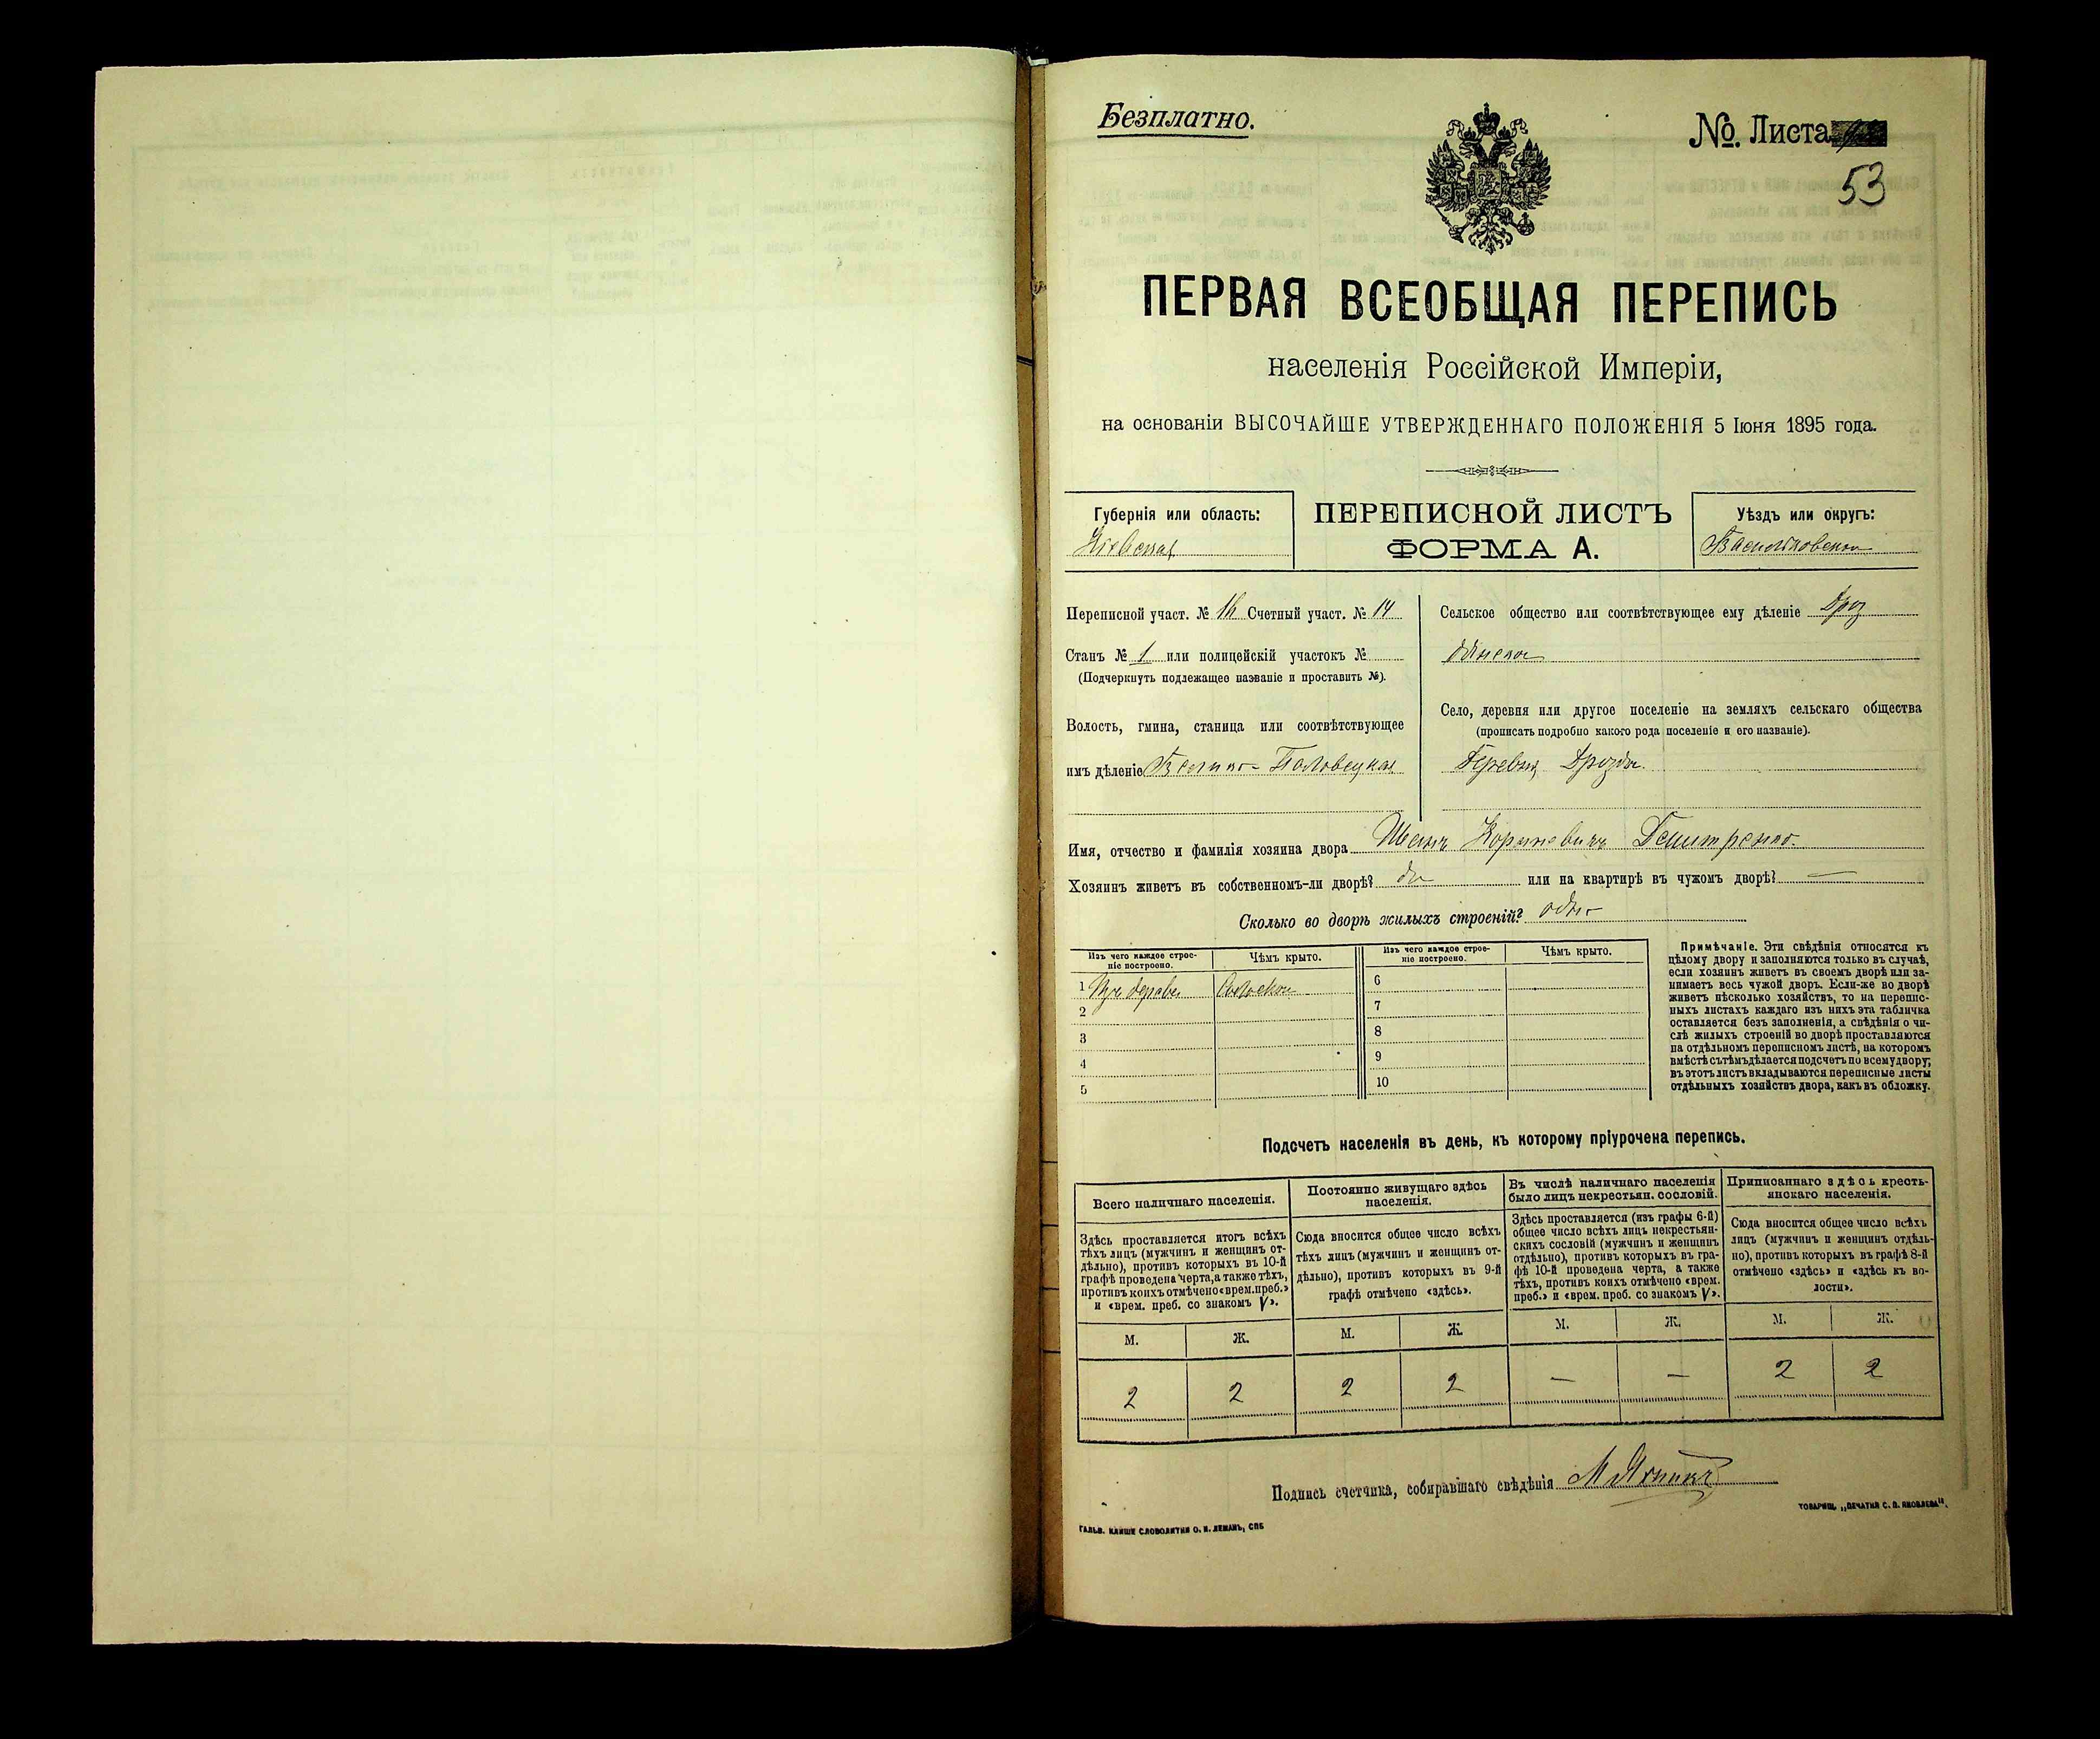 Безплатно.
№. Листа
53
ПЕРВАЯ ВСЕОБЩАЯ ПЕРЕПИСЬ
населенія Россійской Имперіи,
на основаніи ВЫСОЧАЙШЕ УТВЕРЖДЕННАГО ПОЛОЖЕНІЯ 5 Іюня 1895 года.
Губернія или область:
Кіевская
ПЕРЕПИСНОЙ ЛИСТЪ
ФОРМА А.
Уѣздъ или округъ:
Васильковскій
Переписной участ. № 16 Счетный участ. № 14
Станъ № 1 или полицейскій участокъ №
(Подчеркнуть подлежащее названіе и проставить №).
Волость, гмина, станица или соотвѣтствующее
имъ дѣленіе Велико-Половецкая
Сельское общество или соотвѣтствующее ему дѣленіе Дроз
дянское
Село, деревня или другое поселеніе на земляхъ сельскаго общества
(прописать подробно какого рода поселеніе и его названіе).
Деревня Дрозды
Имя, отчество и фамилія хозяина двора Иванъ
Хозяинъ живетъ въ собственномъ-ли дворѣ? да или на квартирѣ въ чужомъ дворѣ? —
Сколько во дворѣ жилыхъ строеній? одно
Изъ чего каждое строе-
ніе построено.
Чѣмъ крыто.
1 Изъ дерева Соломою
2
3
4
5
Изъ чего каждое строе-
ніе построено.
Чѣмъ крыто.
6
7
8
9
10
Примѣчаніе. Эти свѣдѣнія относятся къ
цѣлому двору и заполняются только въ случаѣ,
если хозяинъ живетъ въ своемъ дворѣ или за-
нимаетъ весь чужой дворъ. Если-же во дворѣ
живетъ нѣсколько хозяйствъ, то на перепис-
ныхъ листахъ каждаго изъ нихъ эта табличка
оставляется безъ заполненія, а свѣдѣнія о чи-
слѣ жилыхъ строеній во дворѣ проставляются
на отдѣльномъ переписномъ листѣ, на которомъ
вмѣстѣ съ тѣмъ дѣлается подсчетъ по всему двору;
въ этотъ листъ вкладываются переписные листы
отдѣльныхъ хозяйствъ двора, какъ въ обложку.
Подсчетъ населенія въ день, къ которому пріурочена перепись.
Всего наличнаго населенія.
Здѣсь проставляется итогъ всѣхъ
тѣхъ лицъ (мужчинъ и женщинъ от-
дѣльно), противъ которыхъ въ 10-й
графѣ проведена черта, а также тѣхъ,
противъ коихъ отмѣчено «врем. преб.»
и «врем. преб. со знакомъ V».
М. Ж.
2 2
Постоянно живущаго здѣсь
населенія.
Сюда вносится общее число всѣхъ
тѣхъ лицъ (мужчинъ и женщинъ от-
дѣльно), противъ которыхъ въ 9-й
графѣ отмѣчено «здѣсь».
М. Ж.
2 2
Въ числѣ наличнаго населенія
было лицъ некрестьян. сословій.
Здѣсь проставляется (изъ графы 6-й)
общее число всѣхъ лицъ некрестьян-
скихъ сословій (мужчинъ и женщинъ
отдѣльно), противъ которыхъ въ гра-
фѣ 10-й проведена черта, а также
тѣхъ, противъ коихъ отмѣчено «врем.
преб.» и «врем. преб. со знакомъ V».
М. Ж.
— —
Приписаннаго здѣсь кресть-
янскаго населенія.
Сюда вносится общее число всѣхъ
лицъ (мужчинъ и женщинъ отдѣль-
но), противъ которыхъ въ графѣ 8-й
отмѣчено «здѣсь» и «здѣсь къ во-
лости».
М. Ж.
2 2
Подпись счетчика, собиравшаго свѣдѣнія
ГАЛЬВ. КЛИШЕ СЛОВОЛИТНИ О. И. ЛЕМАНЪ, СПБ
ТОВАРИЩ. „ПЕЧАТНЯ С. П. ЯКОВЛЕВА".